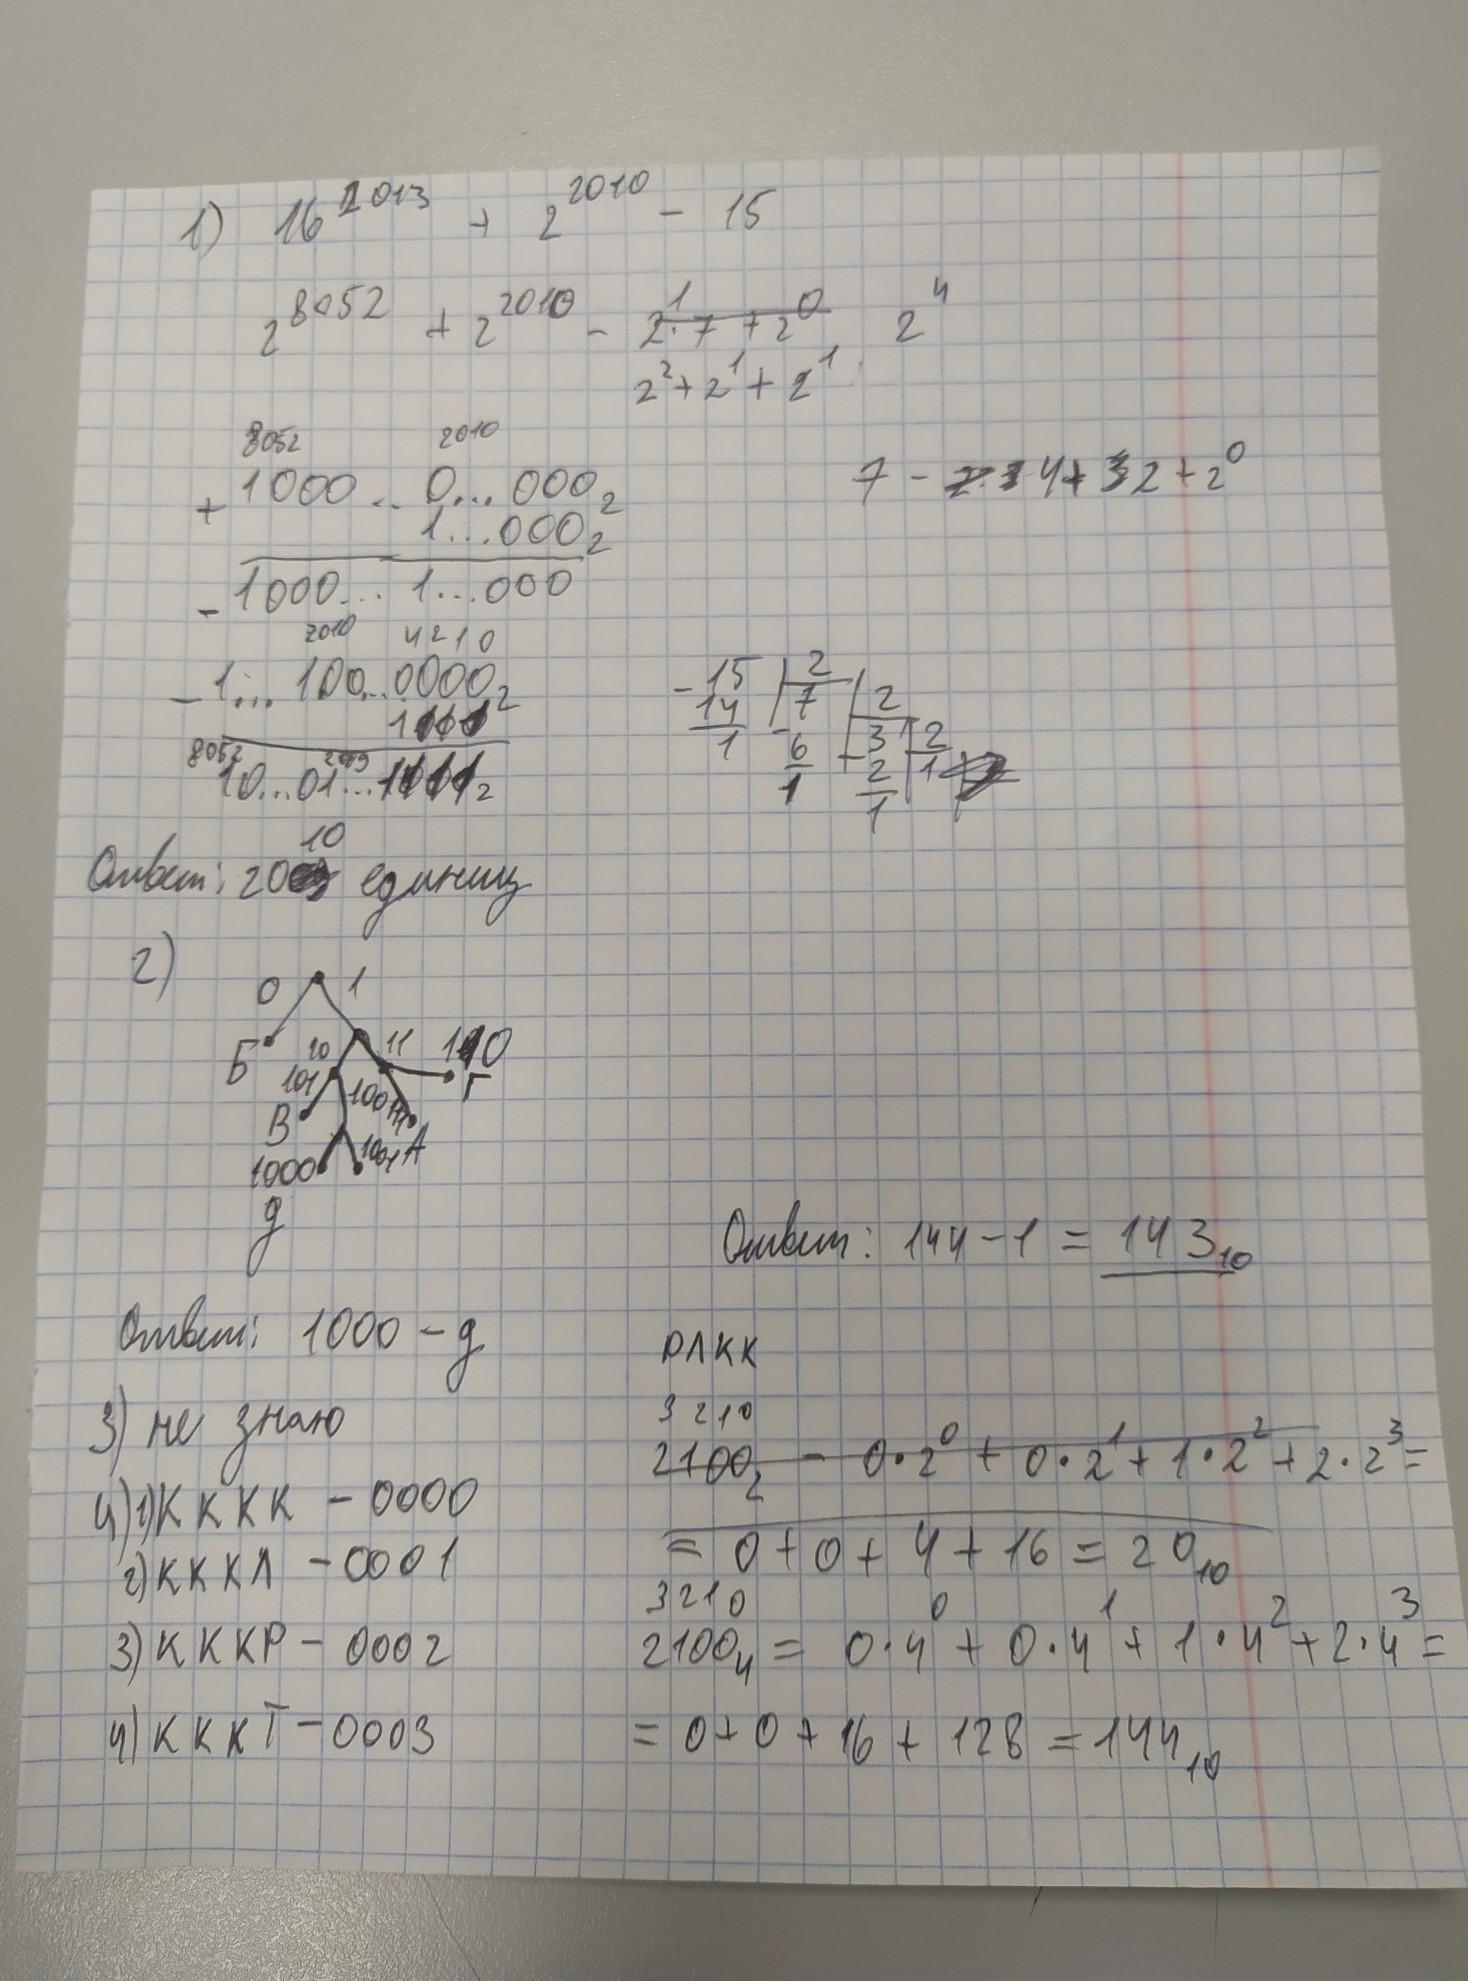 1) 16^2013 + 2^2010 - 15
2^8052 + 2^2010 - 2^1·7 + 2^0 2^4
2^2 + 2^1 + 2^1
8052 2010
+ 1000 .. 0...000_2
1...000_2
7 - 4 + 2 + 2^0
- 1000... 1...000
2010 4210
- 1... 100...0000_2
1111
8052 2009
10...01...1111_2
- 15 | 2
14 | 7 | 2
1 - 6 | 3 | 2
1 - 2 | 1
1
Ответ: 2010 единиц
2)
0 1
Б 10 11 110
101 100 111 Г
В А
1000 1001
д
Ответ: 1000 - д
3) не знаю
4) 1) КККК - 0000
2) КККЛ - 0001
3) КККР - 0002
4) КККТ - 0003
Ответ: 144 - 1 = 143_10
РЛКК
3210
2100_2 - 0·2^0 + 0·2^1 + 1·2^2 + 2·2^3 =
= 0 + 0 + 4 + 16 = 20_10
3210
2100_4 = 0·4^0 + 0·4^1 + 1·4^2 + 2·4^3 =
= 0 + 0 + 16 + 128 = 144_10